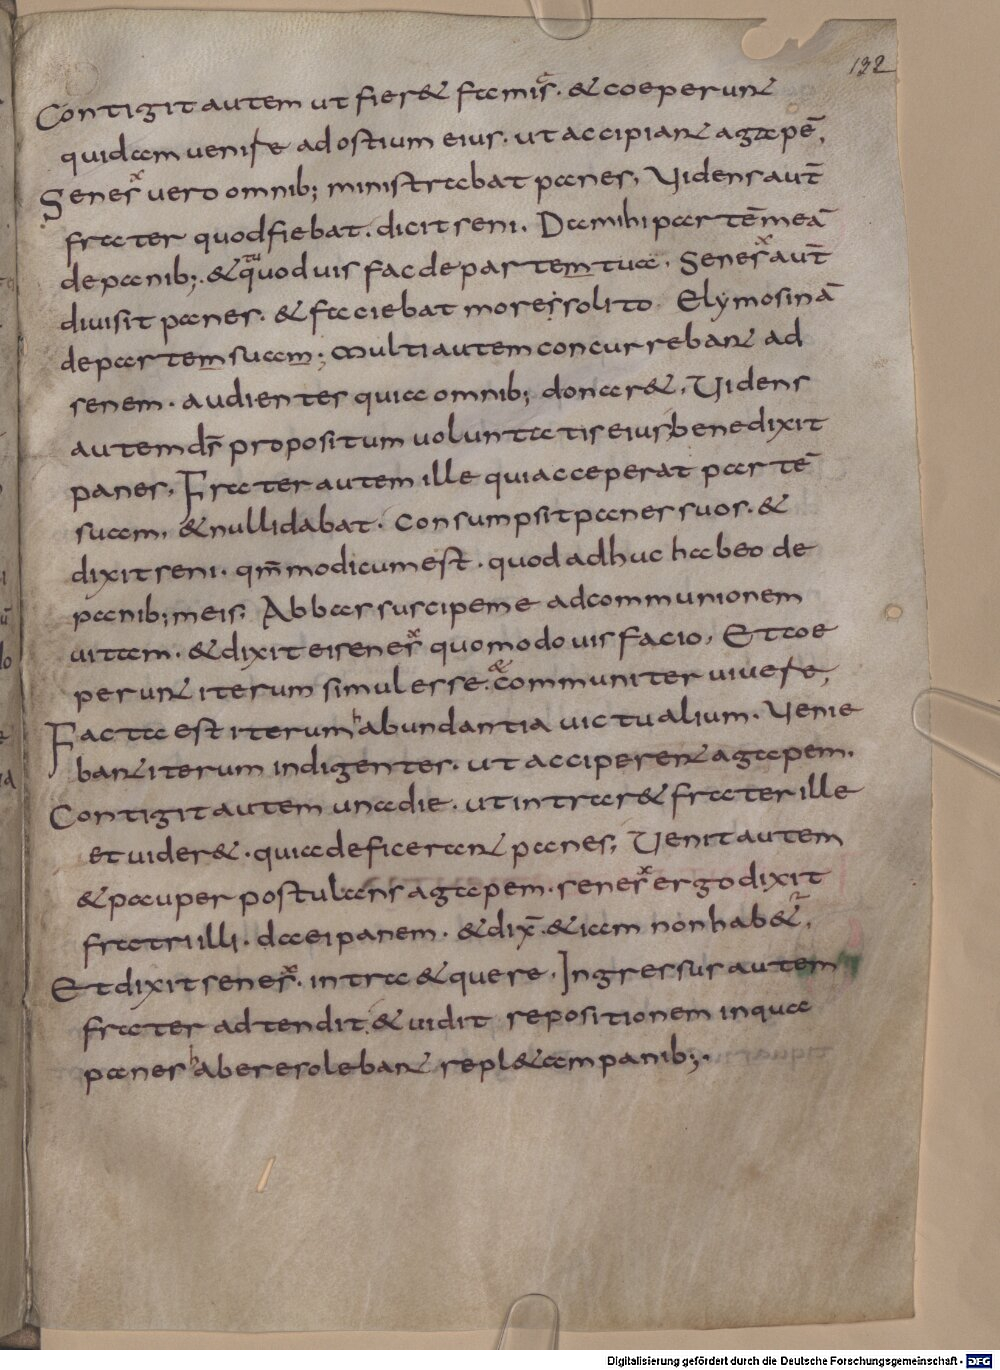 132
Contigit autem ut fier& famis. & coeperunt
quidam uenire ad ostium eius. ut accipiant agapē;
Senex uero omnib; ministrabat panes, Uidens aut̄
frater quod fiebat. dicit seni. Da mihi partē meā
de panib;. & tu quod uis fac de partem tua. Senex aut̄
diuisit panes. & faciebat more solito Elymosinā
de partem suam; Multi autem concurrebant ad
senem. audientes quia omnib; donar&, Uidens
autem d̄s propositum uoluntatis eius benedixit
panes, Frater autem ille qui acceperat partē
suam, & nulli dabat. consumpsit panes suos. &
dixit seni. qm̄ modicum est. quod adhuc habeo de
panib; meis, Abbas suscipe me ad communionem
uitam. & dixit ei senex quomodo uis facio, Et coe
perunt iterum simul esse. & communiter uiuere;
Facta est iterum habundantia uictualium. Uenie
bant iterum indigentes. ut acciperent agapem.
Contigit autem una die. ut intrar& frater ille
et uider&. quia deficerant panes; Uenit autem
& pauper postulans agapem. senex ergo dixit
fratri illi. da ei panem. & dix̄. & iam non hab&ur,
Et dixit senex. intra & quere. Ingressus autem
frater adtendit & uidit repositionem in qua
panes habere solebant repl&am panib;.
Digitalisierung gefördert durch die Deutsche Forschungsgemeinschaft - DFG